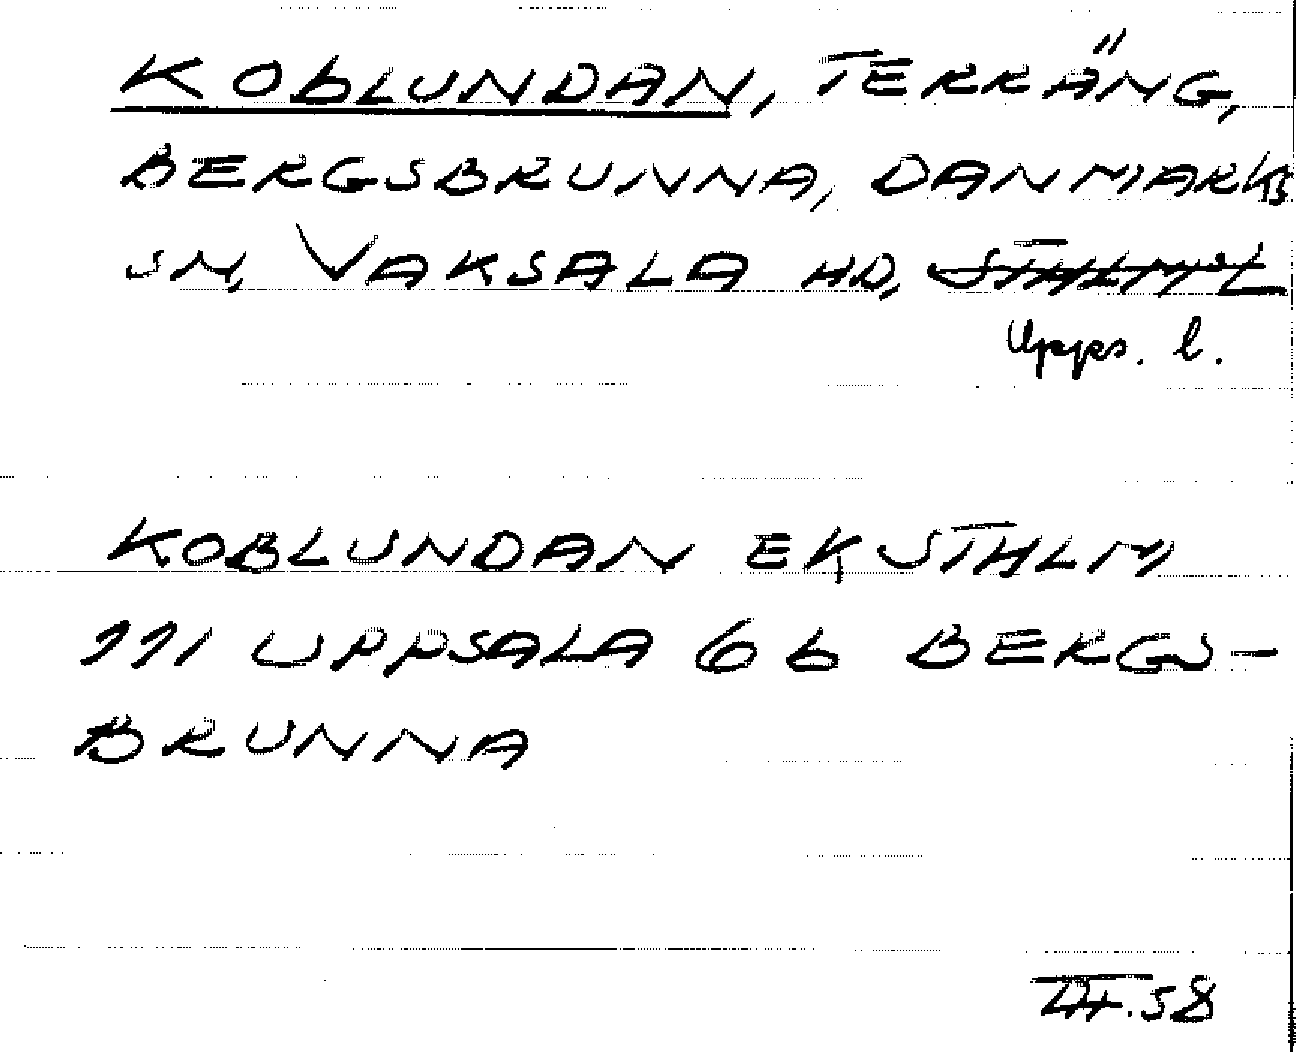 KOBLUNDAN, TERRÄNG,
BERGSBRUNNA, DANMARKS
SN, VAKSALA HD, STHLMS L
Upps. l.
KOBLUNDAN EK STHLM
111 UPPSALA 66 BERGS-
BRUNNA
58